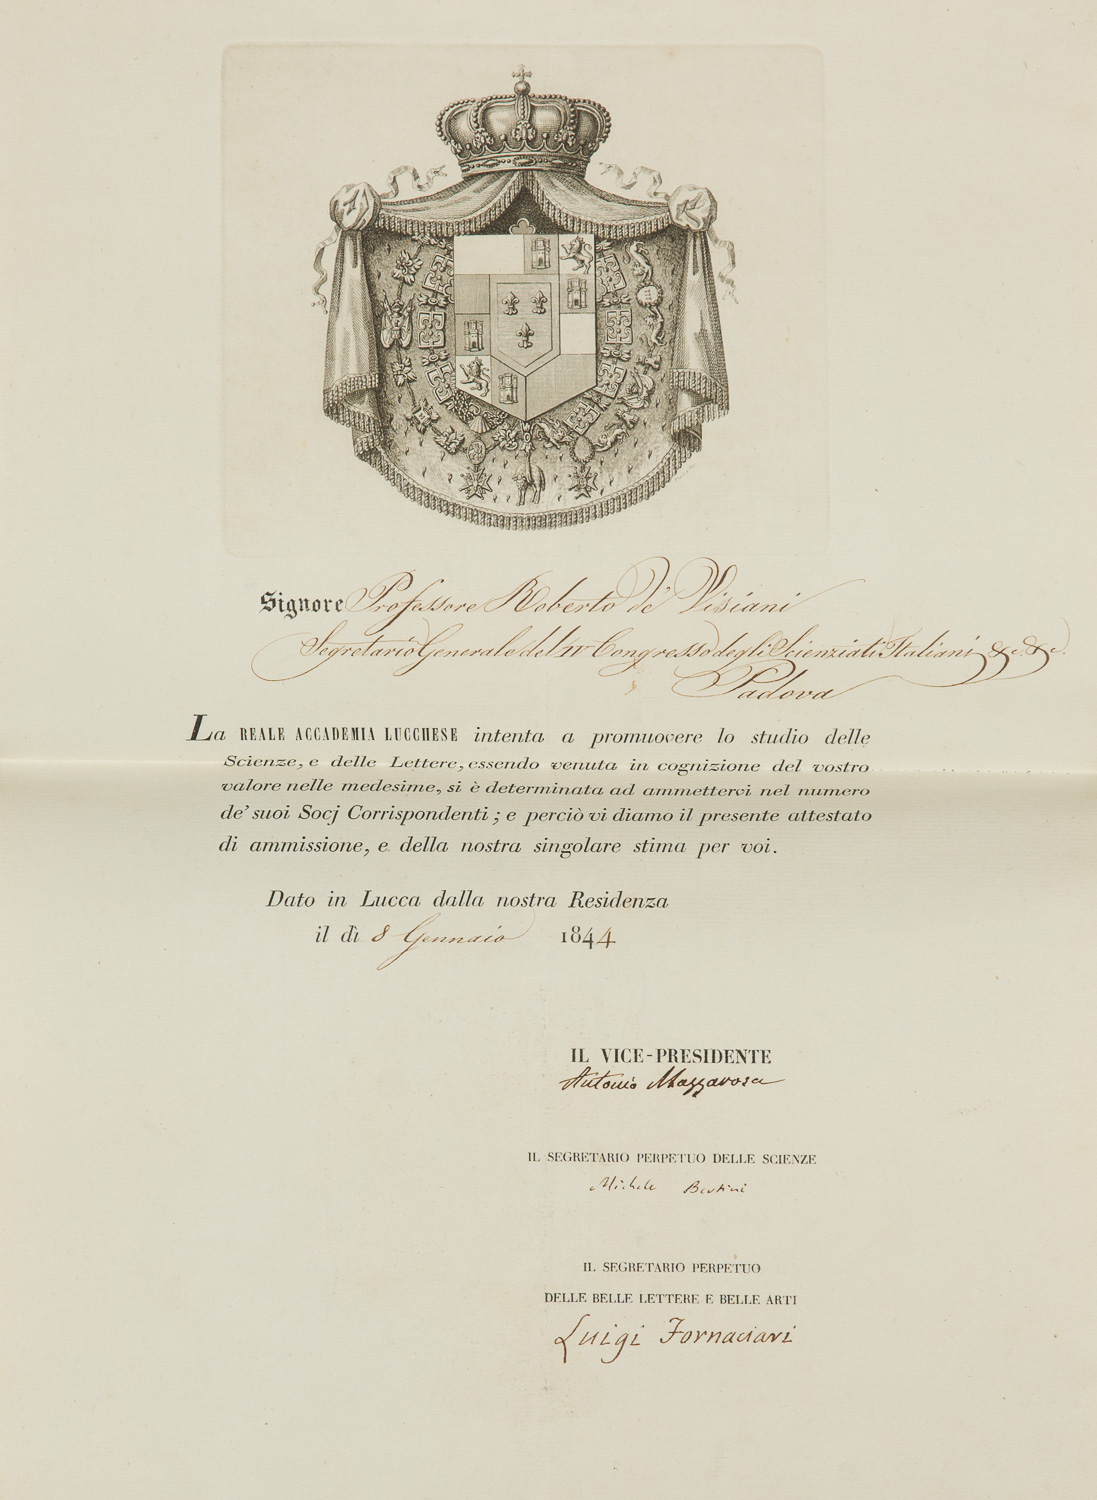 Signore Professore Roberto de' Visiani
Segretario Generale del IV Congresso degli Scienziati Italiani &c. &c.
Padova
La REALE ACCADEMIA LUCCHESE intenta a promuovere lo studio delle
Scienze, e delle Lettere, essendo venuta in cognizione del vostro
valore nelle medesime, si è determinata ad ammettervi nel numero
de' suoi Socj Corrispondenti; e perciò vi diamo il presente attestato
di ammissione, e della nostra singolare stima per voi.
Dato in Lucca dalla nostra Residenza
il dì 8 Gennaio 1844
IL VICE-PRESIDENTE
Antonio Mazzarosa
IL SEGRETARIO PERPETUO DELLE SCIENZE
Michele Bertini
IL SEGRETARIO PERPETUO
DELLE BELLE LETTERE E BELLE ARTI
Luigi Fornaciari